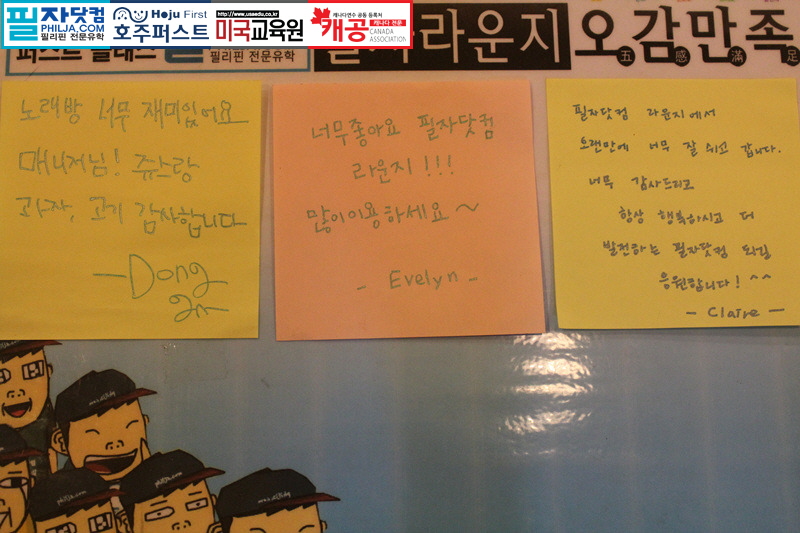 필자닷컴
PHILJA.COM
필리핀 전문유학
Hoju First
호주퍼스트
http://www.usaedu.co.kr
미국교육원
캐나다연수 공동 등록처
캐공 캐나다 전문
CANADA ASSOCIATION
필리핀 전문유학
라운지 오감만족
五感滿足
노래방 너무 재미있어요
매니저님! 쥬스랑
과자, 고기 감사합니다
-Dong
너무좋아요 필자닷컴
라운지!!!
많이이용하세요~
- Evelyn -
필자닷컴 라운지에서
오랜만에 너무 잘 쉬고 갑니다.
너무 감사드리고
항상 행복하시고 더
발전하는 필자닷컴 되길
응원합니다! ^^
- Claire -
philja.com